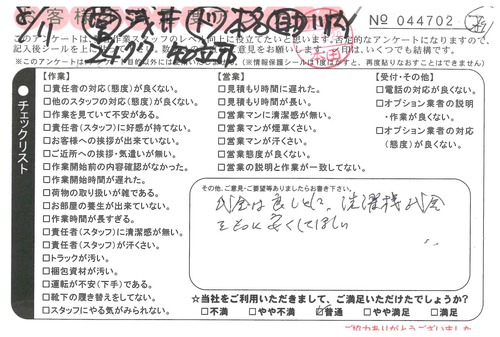 No 044702
このアンケートは、
記入後シールを
※このアンケートは
●チェックリスト
【作業】
□責任者の対応(態度)が良くない。
□他のスタッフの対応(態度)が良くない。
□作業を見ていて不安がある。
□責任者(スタッフ)に好感が持てない。
□お客様への挨拶が出来ていない。
□ご近所への挨拶・気遣いが無い。
□作業開始前の内容確認がなかった。
□作業開始時間が遅れた。
□荷物の取り扱いが雑である。
□お部屋の養生が出来ていない。
□作業時間が長すぎる。
□責任者(スタッフ)に清潔感が無い。
□責任者(スタッフ)が汗くさい。
□トラックが汚い。
□梱包資材が汚い。
□運転が不安(下手)である。
□靴下の履き替えをしてない。
□スタッフにやる気がみられない。
【営業】
□見積もり時間に遅れた。
□見積もり時間が長い。
□営業マンに清潔感が無い。
□営業マンが煙草くさい。
□営業マンが汗くさい。
□営業態度が良くない。
□営業の説明と作業が一致してない。
【受付・その他】
□電話の対応が良くない。
□オプション業者の説明
・作業が良くない。
□オプション業者の対応
(態度)が良くない。
その他、ご意見・ご要望等ありましたらお書き下さい。
代金は良いとして、洗濯機代金
安くしてほしい
☆当社をご利用いただきまして、ご満足いただけたでしょうか?
□不満 □やや不満 □普通 □やや満足 □満足
ご協力ありがとうございました